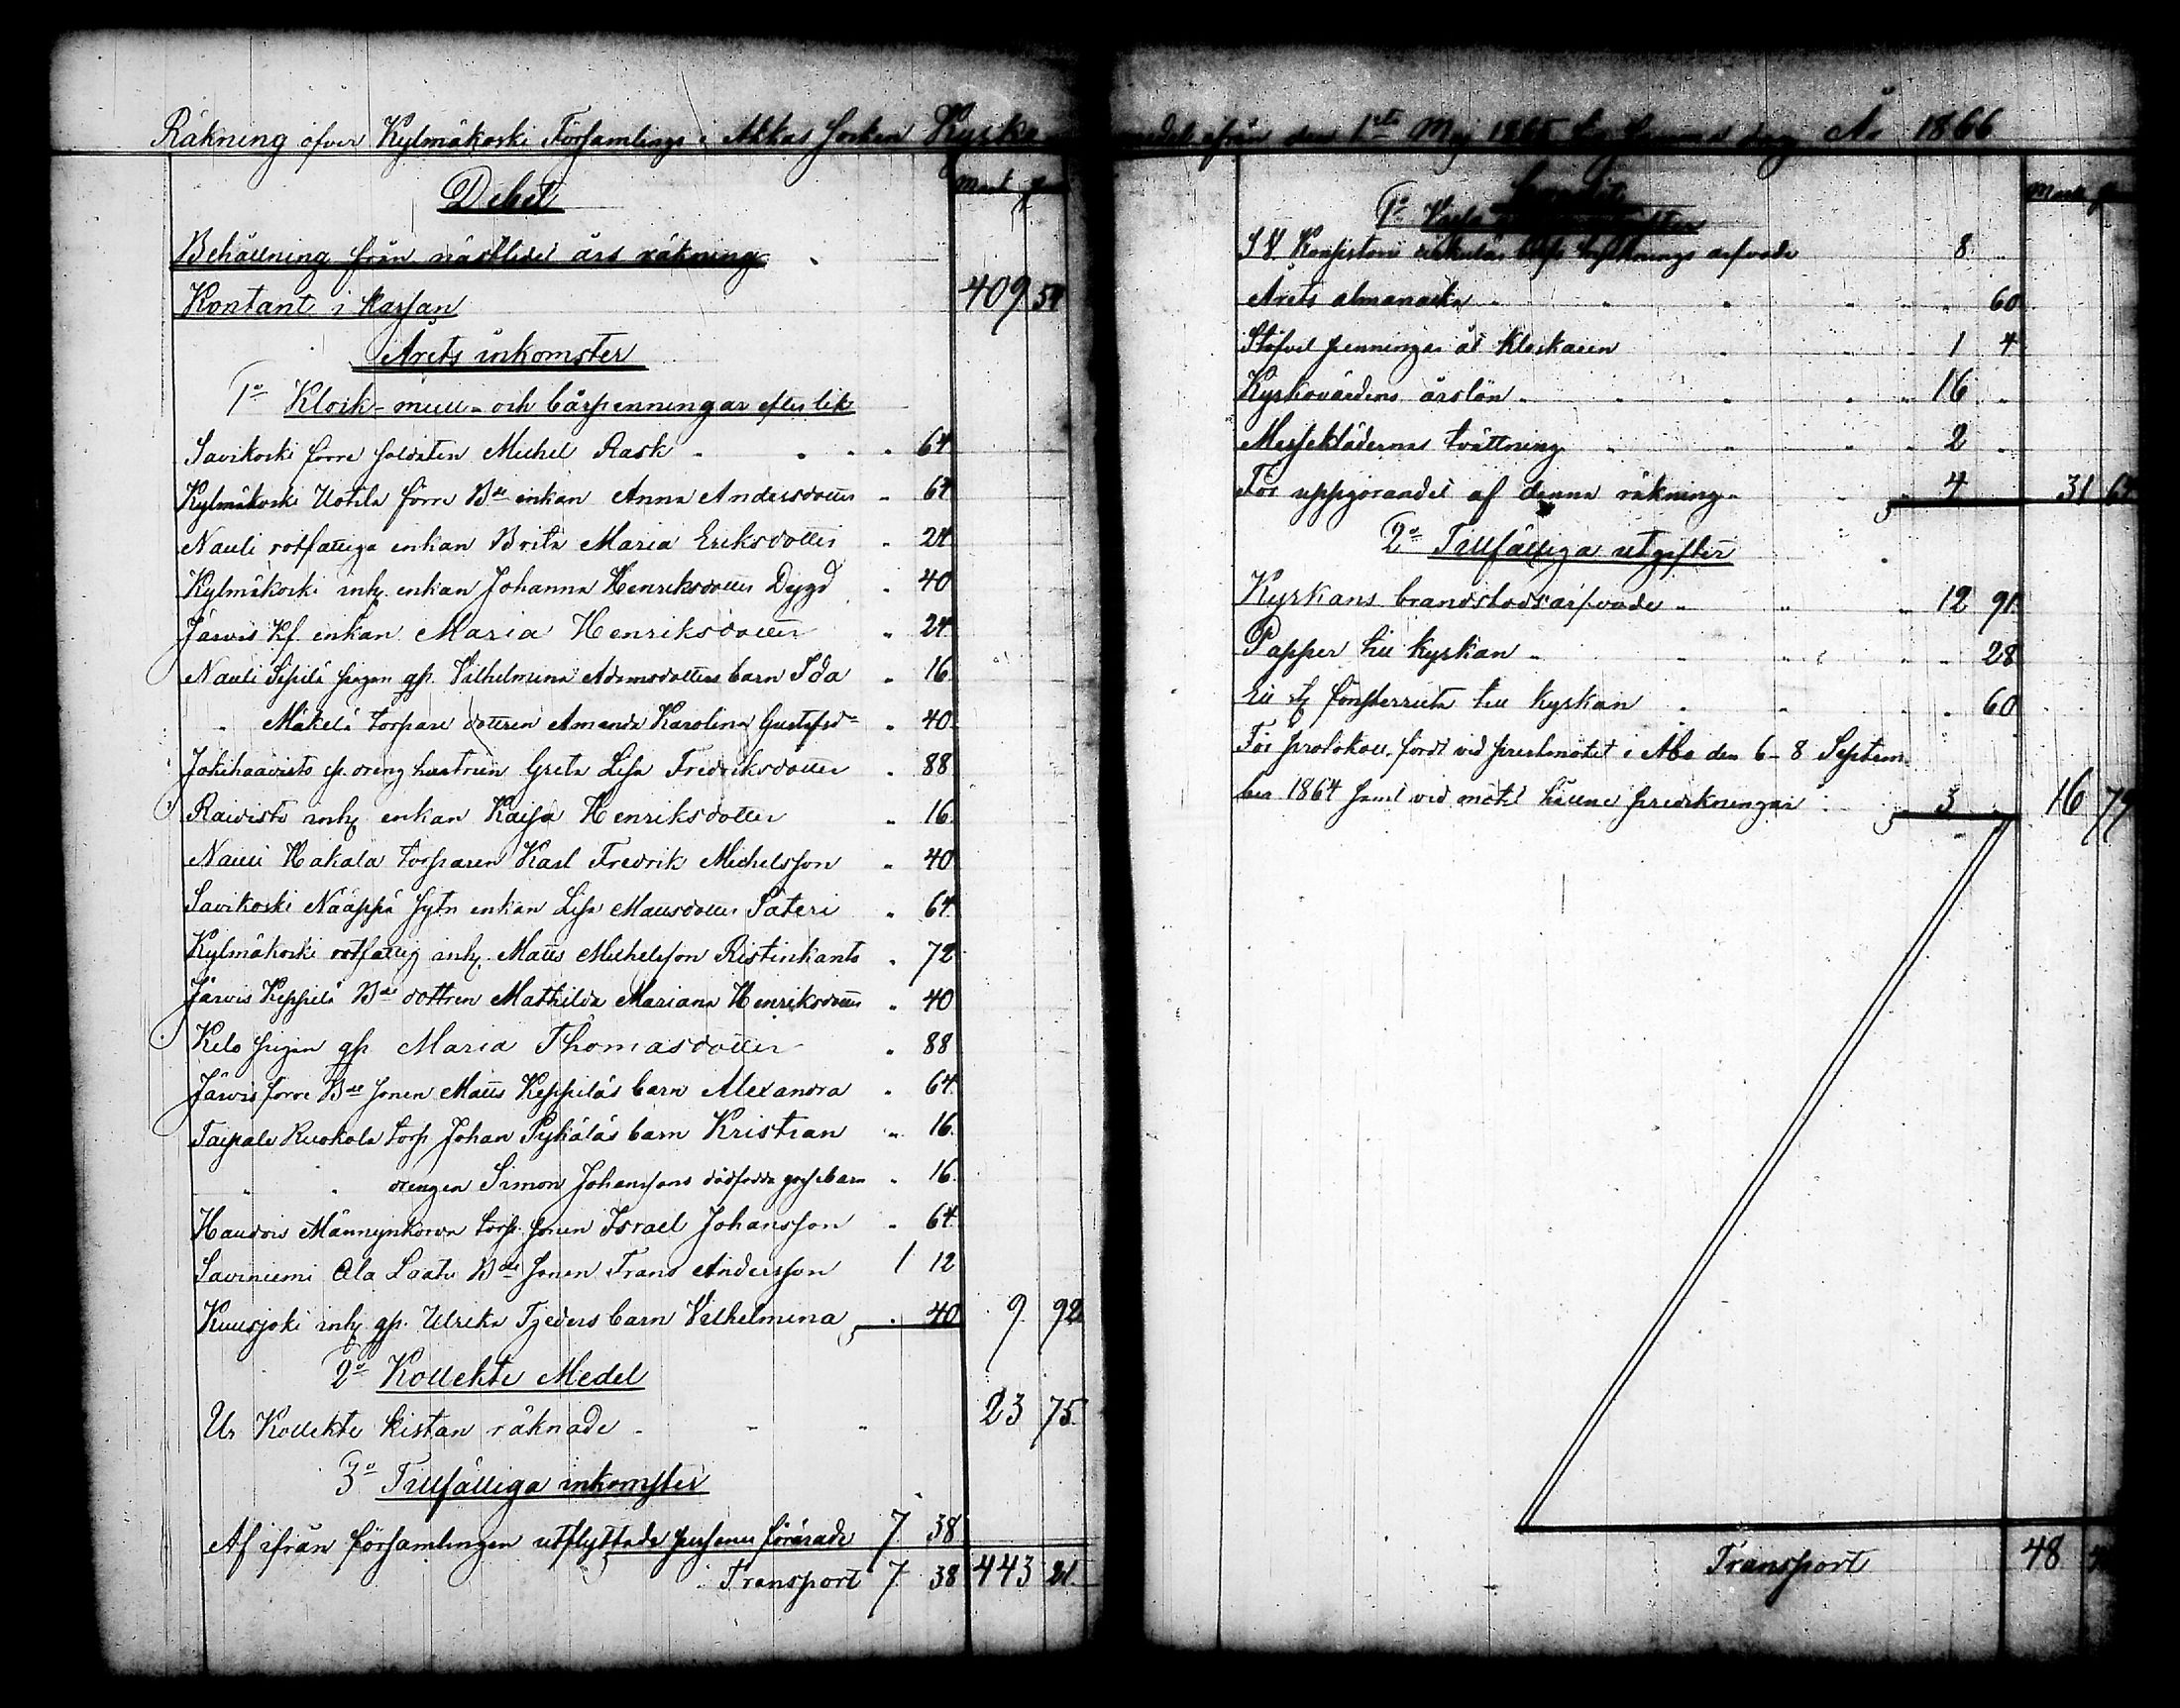 Räkning öfver Kylmäkoski Församlings i Akkas Socken Kyrko
Debet
Mark
Behållning från nästledet års räkning
Kontant i Kassan 409 54
Årets inkomster
1o Klock- mull- och bårpenningar efter lik
Savikoski förre soldaten Michel Rask " 64
Kylmäkoski Uotila förre Bde enkan Anna Andersdotter " 64
Nauli rotfattiga enkan Brita Maria Eriksdotter " 24
Kylmäkoski inh. enkan Johanna Henriksdotter Dygd " 40
Järvis Kf. enkan Maria Henriksdotter " 24
Nauli Sipilä pigan gp. Vilhelmina Adamsdotters barn Ida " 16
" Mäkelä torpare dottren Amanda Karolina Gustafsdr " 40
Jokihaavisto sp. dreng hustrun Greta Lisa Fredriksdotter " 88
Raivisto inh. enkan Kaisa Henriksdotter " 16
Nauli Hakala torparen Karl Fredrik Michelsson " 40
Savikoski Nääppä sytn. enkan Lisa Mattsdotter Säteri " 64
Kylmäkoski rotfattig inh. Matts Michelsson Ristinkanto " 72
Järvis Keppilä Bde dottren Mathilda Mariana Henriksdotter " 40
Kelo pigan gp. Maria Thomasdotter " 88
Järvis förre Bde sonen Matts Keppiläs barn Alexandra " 64
Taipale Ruokola torp. Johan Pykäläs barn Kristian " 16
" " drengen Simon Johanssons dödfödda gossebarn " 16
Haudois Männynkorva torp. sonen Israel Johansson " 64
Saviniemi Ala Laate Bde sonen Frans Andersson 1 12
Kuusjoki inh. gp. Ulrika Tjeders barn Vilhelmina " 40 9 92
2o Kollekte Medel
Ur Kollekte kistan räknade 23 75
3o Tillfälliga inkomster
Af ifrån församlingen utflyttade personer förärade 7 38
Transport 7 38 443 21
medel ifrån den 1sta Maj 1865 till samma dag År 1866
Mark
1o
Konsistorii arfvode 8 "
Årets almanacka " 60
Stöfvel penningar åt klockaren 1 4
Kyrkovärdens årslön 16 "
Messeklädernas tvättning 2 "
För uppgörandet af denna räkning 4 31 64
2o Tillfälliga utgifter
Kyrkans brandstodsarfvode 12 91
Papper till kyrkan " 28
fönsterruta till kyrkan " 60
För protokoll, fördt vid prestmötet i Åbo den 6-8 Septem
ber 1864 samt vid mötet hållne predikningar 3 " 16 79
Transport 48